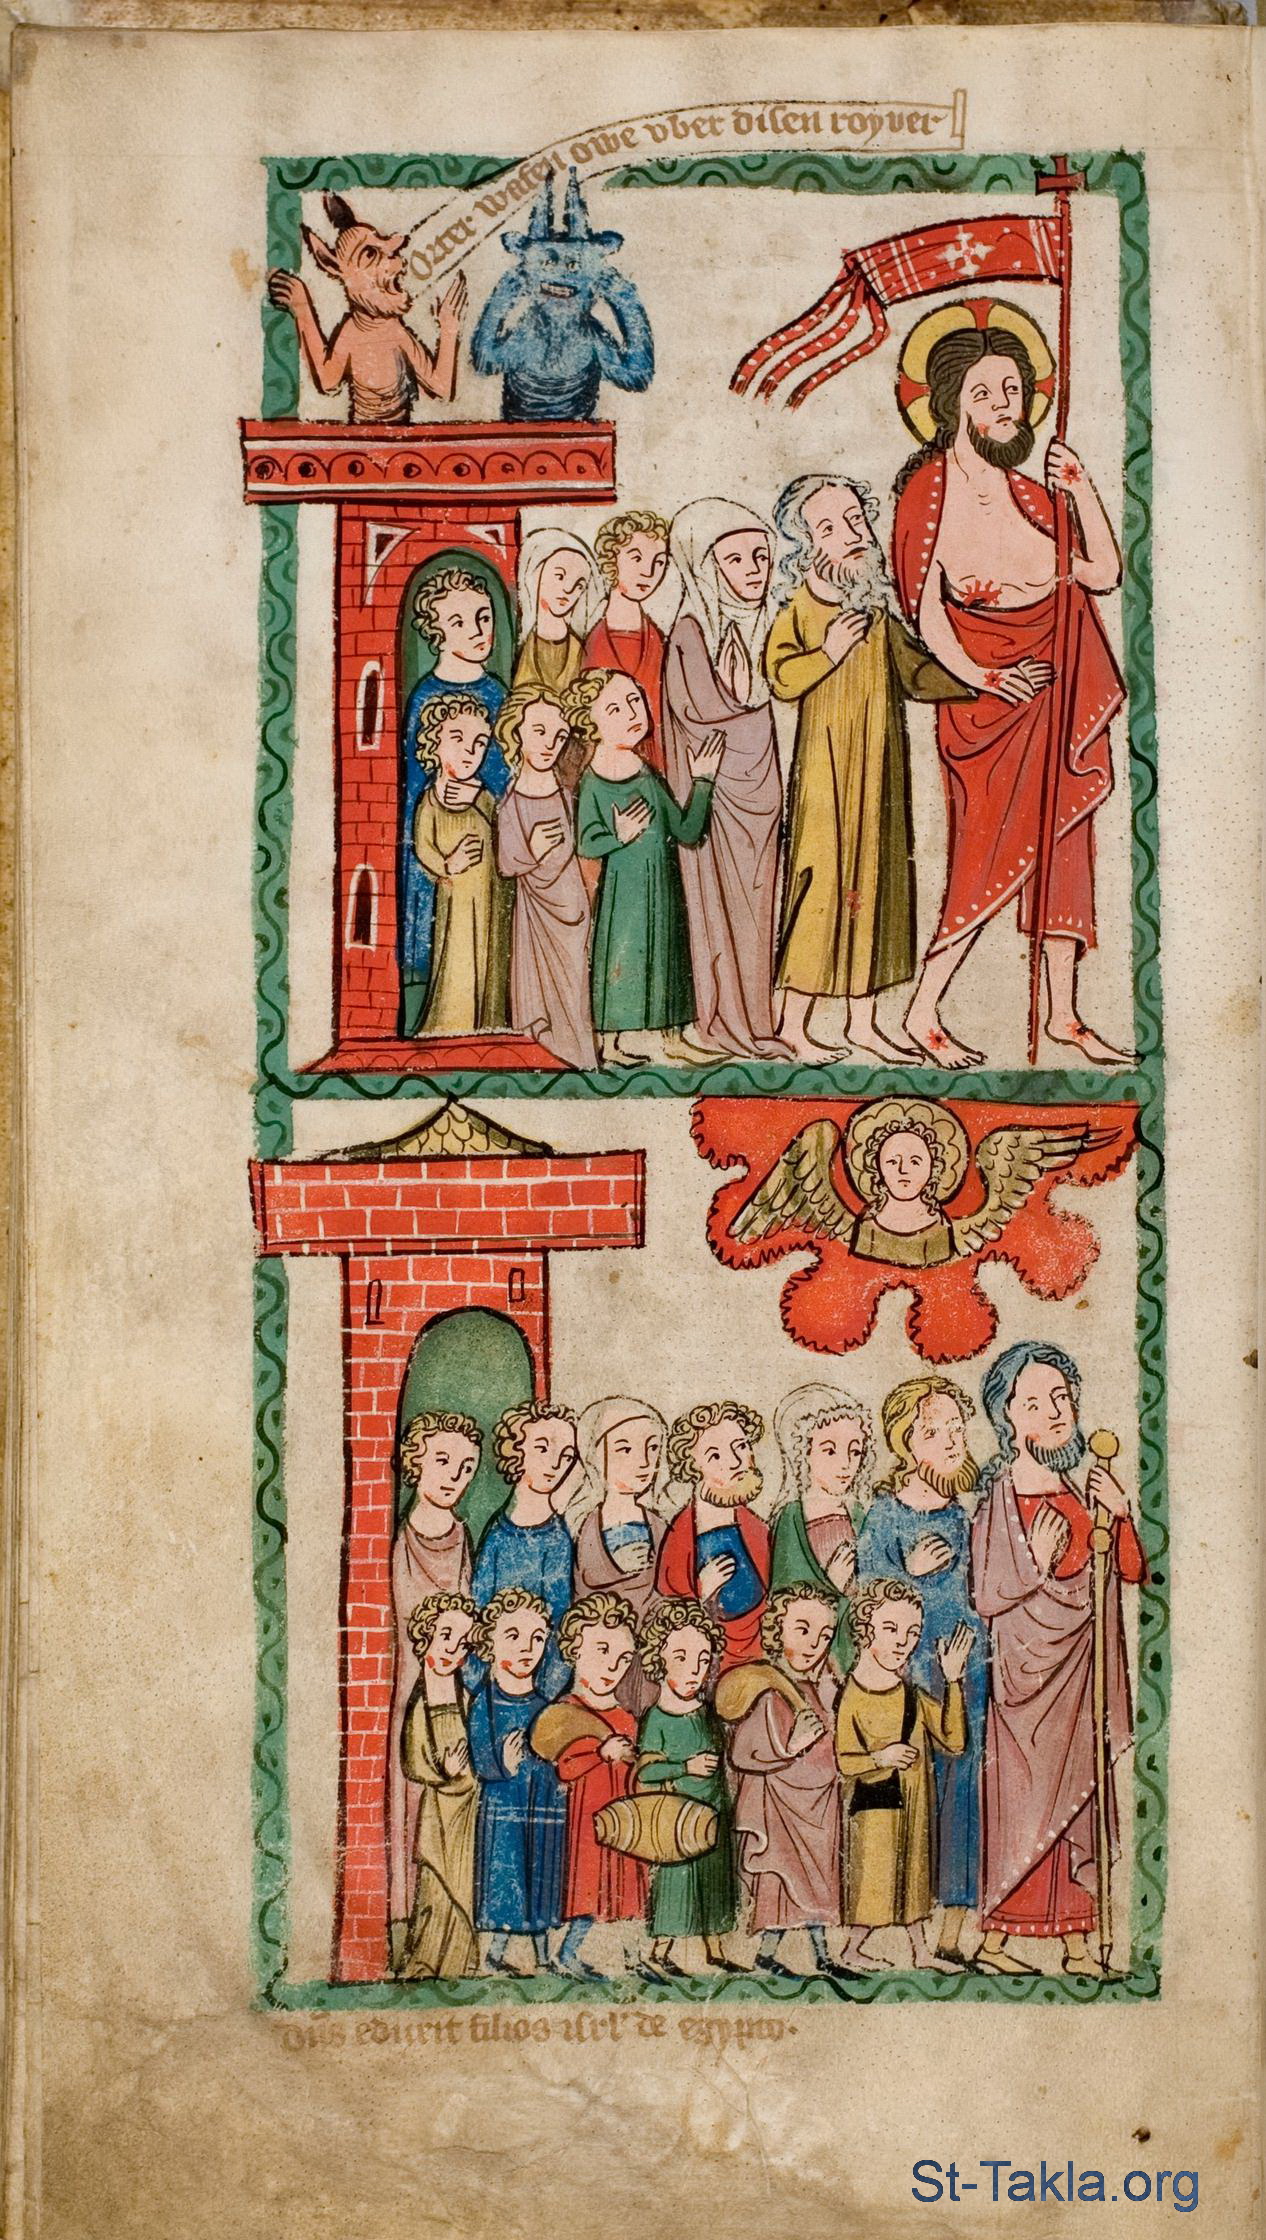 Ozter wafen owe vber disen royver
dn̄s eduxit filios isrl' de egypto.
St-Takla.org